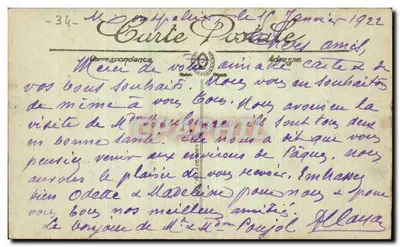 -34- M le 15 Janvier 1922
Carte Postale
Chers amis,
Correspondance Adresse
Merci de votre aimable carte & de
vos bons souhaits. Nous vous en souhaitons
de même à vous tous. Nous avons eu la
visite de Mme ils sont tous deux
en bonne santé. Elle nous a dit que vous
pensiez venir aux environs de Pâques. Nous
aurons le plaisir de vous revoir. Embrassez
bien Odette & Madeleine pour nous & pour
vous tous nos meilleurs amitiés.
Le bonjour de Mr & Mme Poujol